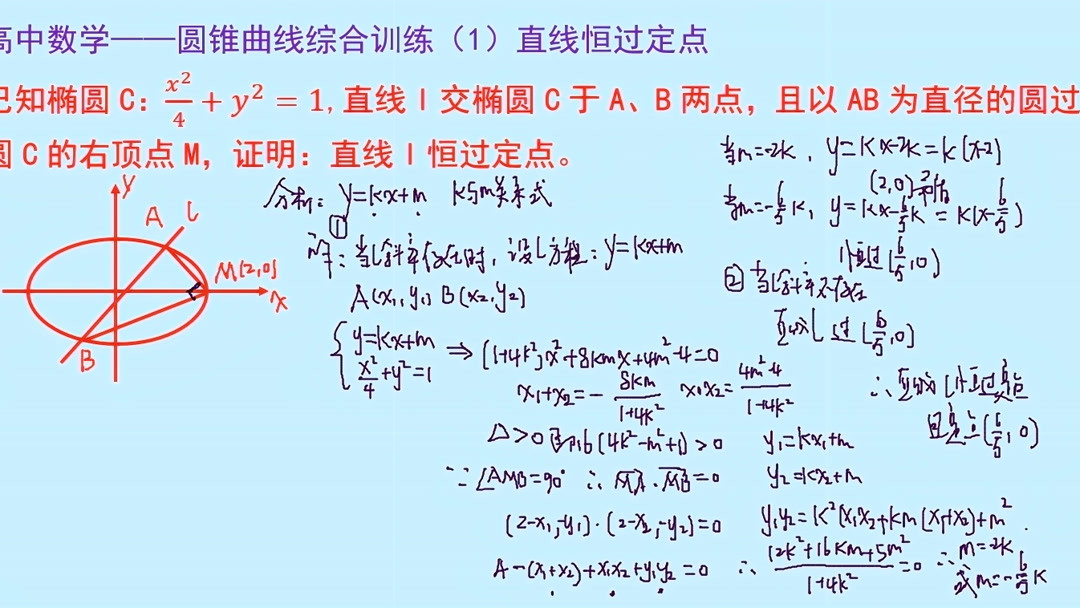 高中数学——圆锥曲线综合训练（1）直线恒过定点
已知椭圆 C：x²/4 + y² = 1, 直线 l 交椭圆 C 于 A、B 两点，且以 AB 为直径的圆过
圆 C 的右顶点 M，证明：直线 l 恒过定点。
y
A
l
M(2,0)
x
B
分析：y=kx+m k与m关系式
①
解：当l斜率存在时，设l方程：y=kx+m
A(x₁,y₁) B(x₂,y₂)
{ y=kx+m
x²/4+y²=1 ⇒ (1+4k²)x²+8kmx+4m²-4=0
x₁+x₂=-8km/(1+4k²) x₁x₂=(4m²-4)/(1+4k²)
Δ>0 即16(4k²-m²+1)>0 y₁=kx₁+m
∵∠AMB=90° ∴ MA·MB=0 y₂=kx₂+m
(2-x₁,-y₁)·(2-x₂,-y₂)=0 y₁y₂=k²x₁x₂+km(x₁+x₂)+m²
4-(x₁+x₂)+x₁x₂+y₁y₂=0 ∴ (12k²+16km+5m²)/(1+4k²)=0 ∴ m=-2k
或m=-6/5k
当m=-2k，y=kx-2k=k(x-2)
(2,0)
当m=-6/5k，y=kx-6/5k=k(x-6/5)
l过(6/5,0)
②当l斜率不存在
直线l过(6/5,0)
∴直线l恒过定点
(6/5,0)